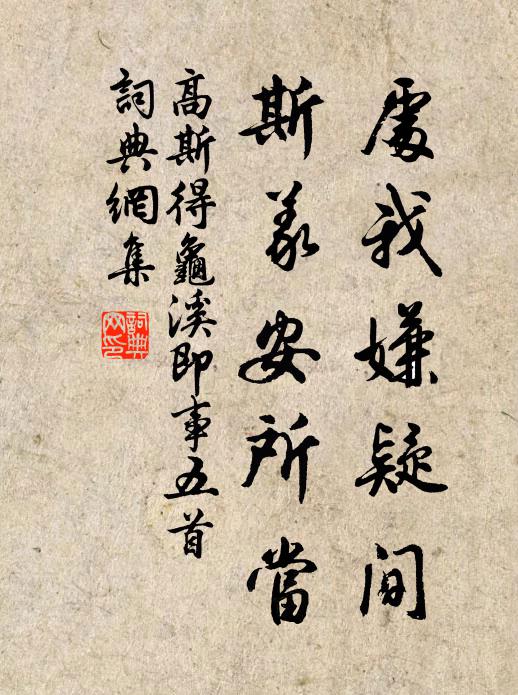 處我嫌疑间
斯義安所當
高斯得龜溪即事五首
詞典網集
詞典
网印